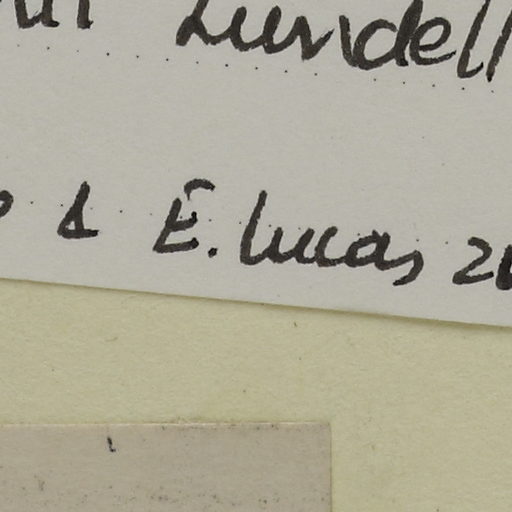 Lundell
& E. Lucas 20